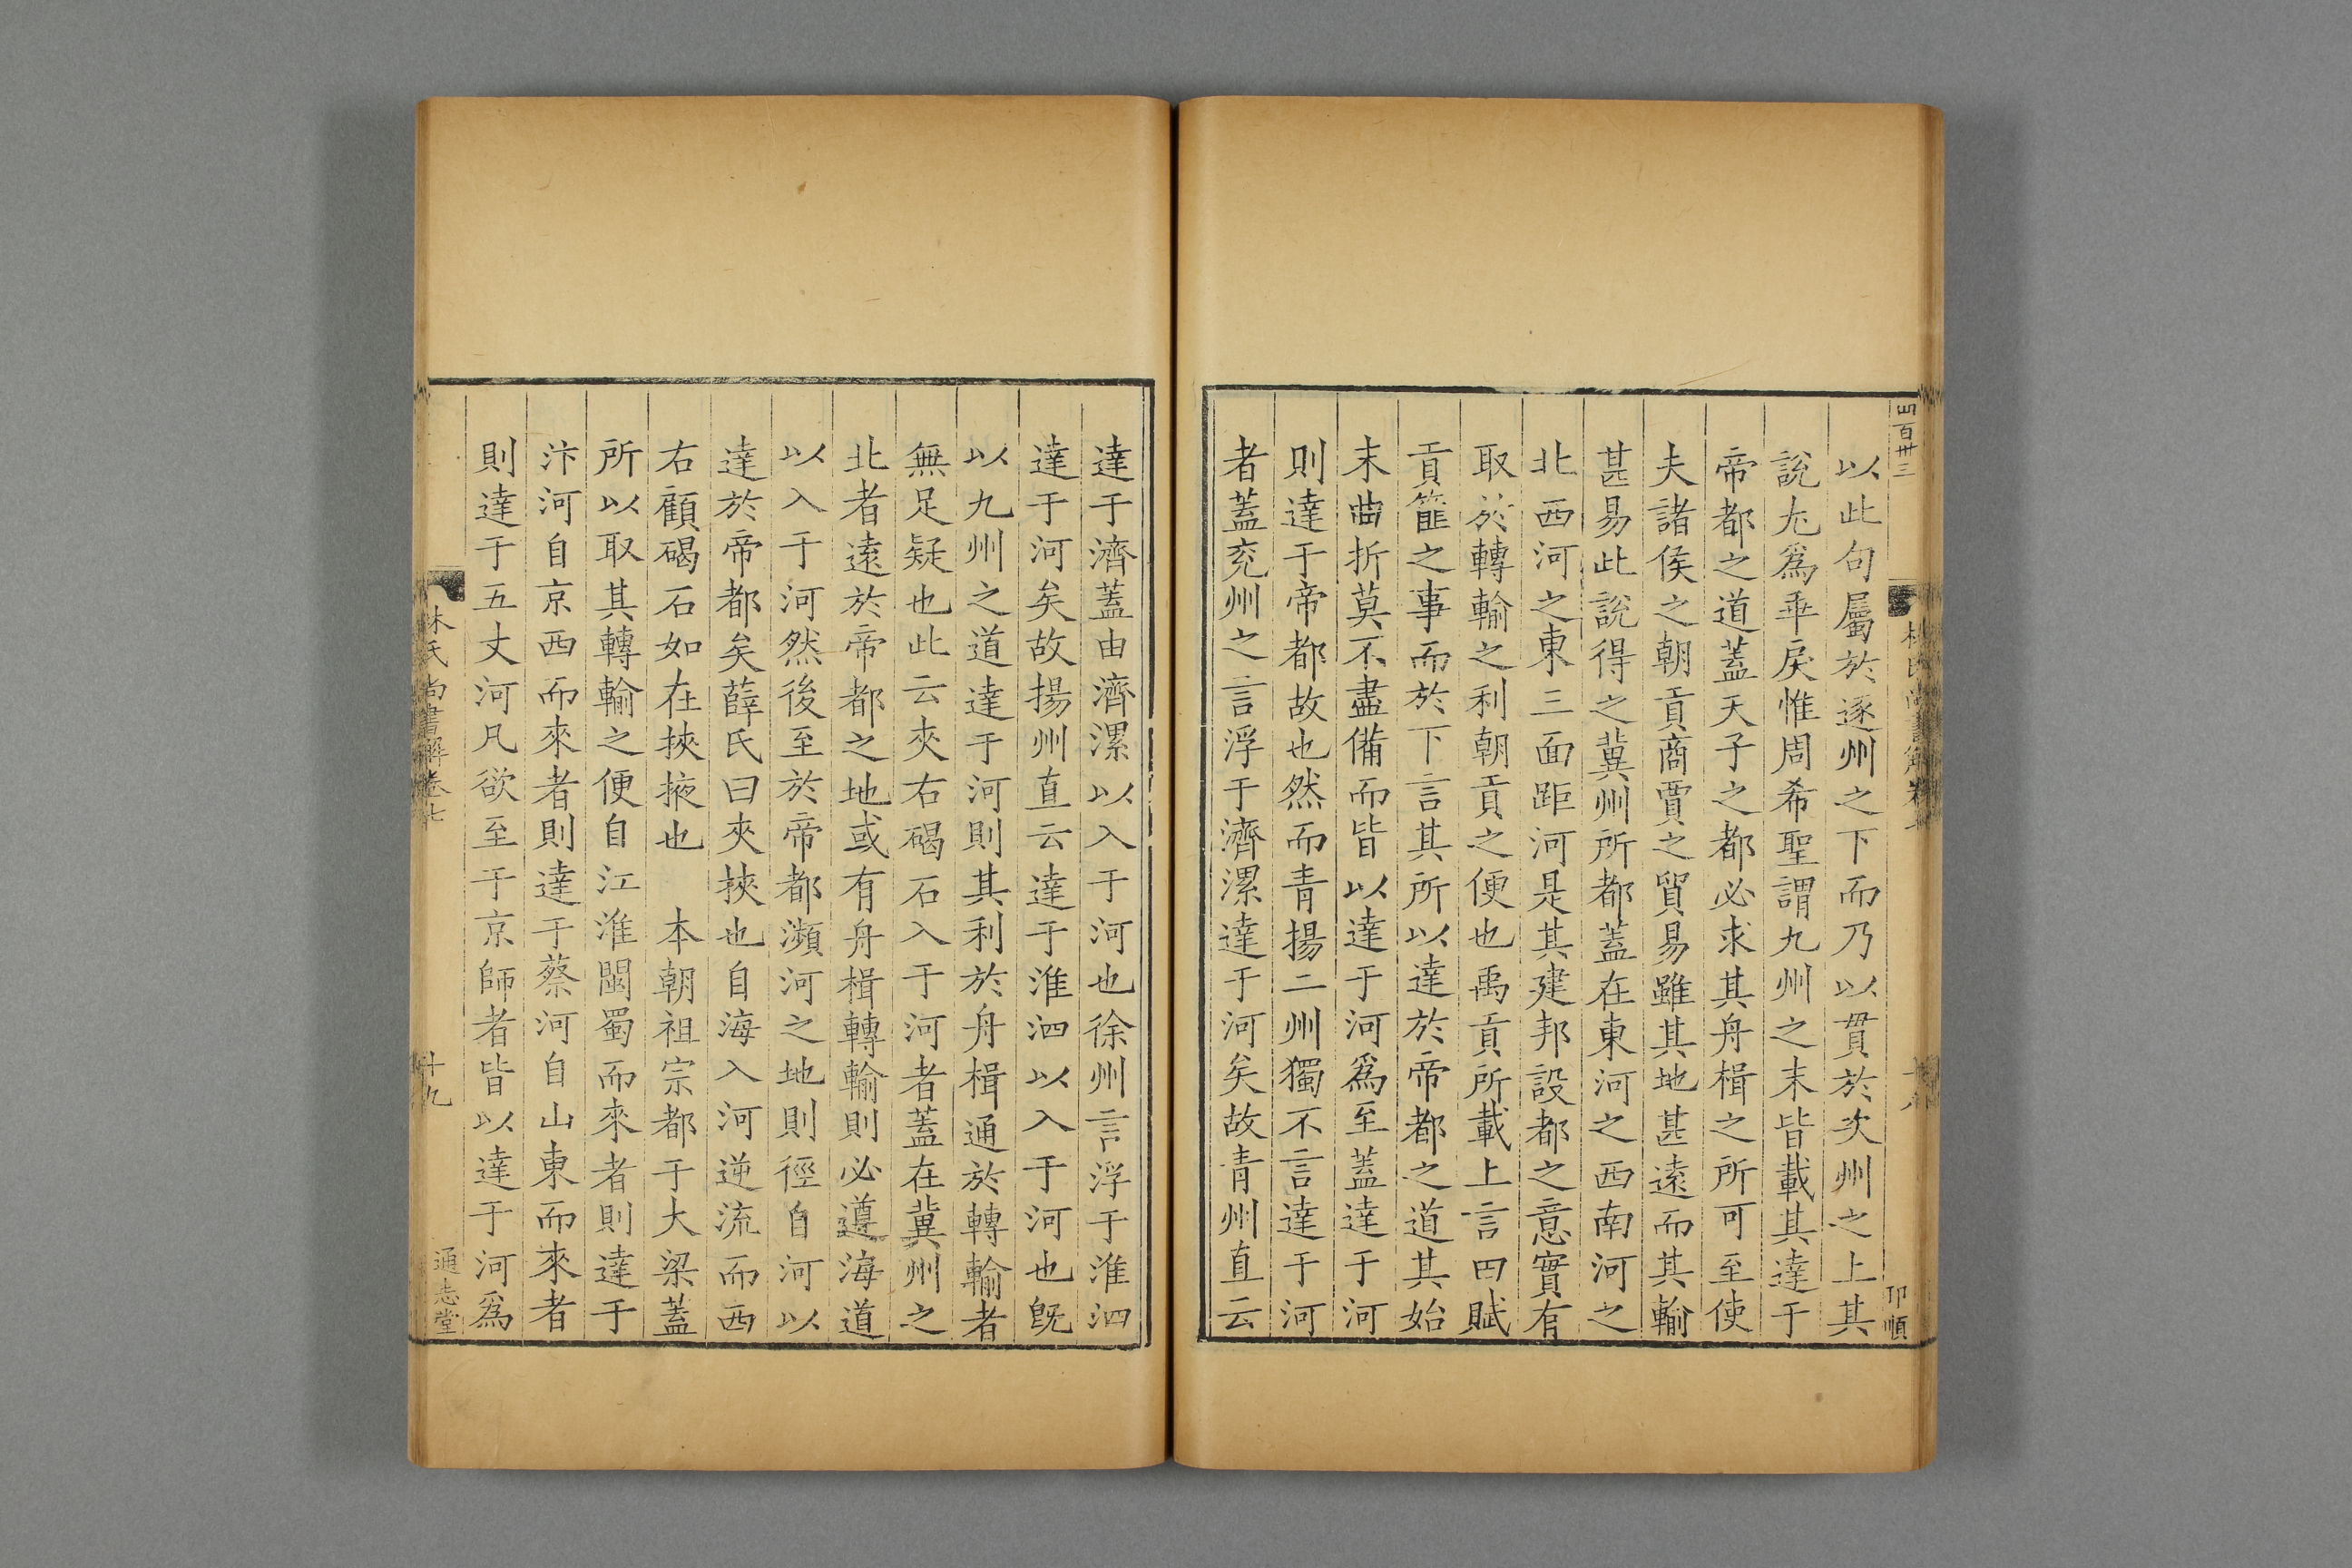 以此句屬於逐州之下而乃以貫於次州之上其
說尢爲乖戾惟周希聖謂九州之末皆載其達于
帝都之道蓋天子之都必求其舟楫之所可至使
夫諸侯之朝貢商賈之貿易雖其地甚遠而其輸
甚易此說得之冀州所都蓋在東河之西南河之
北西河之東三面距河是其建邦設都之意實有
取於轉輸之利朝貢之便也禹貢所載上言田賦
貢篚之事而於下言其所以達於帝都之道其始
末曲折莫不盡備而皆以達于河爲至蓋達于河
則達于帝都故也然而青揚二州獨不言達于河
者蓋兖州之言浮于濟漯達于河矣故青州直云
達于濟蓋由濟漯以入于河也徐州言浮于淮泗
達于河矣故揚州直云達于淮泗以入于河也旣
以九州之道達于河則其利於舟楫通於轉輸者
無足疑也此云夾右碣石入于河者蓋在冀州之
北者遠於帝都之地或有舟楫轉輸則必遵海道
以入于河然後至於帝都瀕河之地則徑自河以
達於帝都矣薛氏曰夾挾也自海入河逆流而西
右顧碣石如在挾掖也　本朝祖宗都于大梁蓋
所以取其轉輸之便自江淮閩蜀而來者則達于
汴河自京西而來者則達于蔡河自山東而來者
則達于五丈河凡欲至于京師者皆以達于河爲
林氏尚書解卷七
十九
通志堂